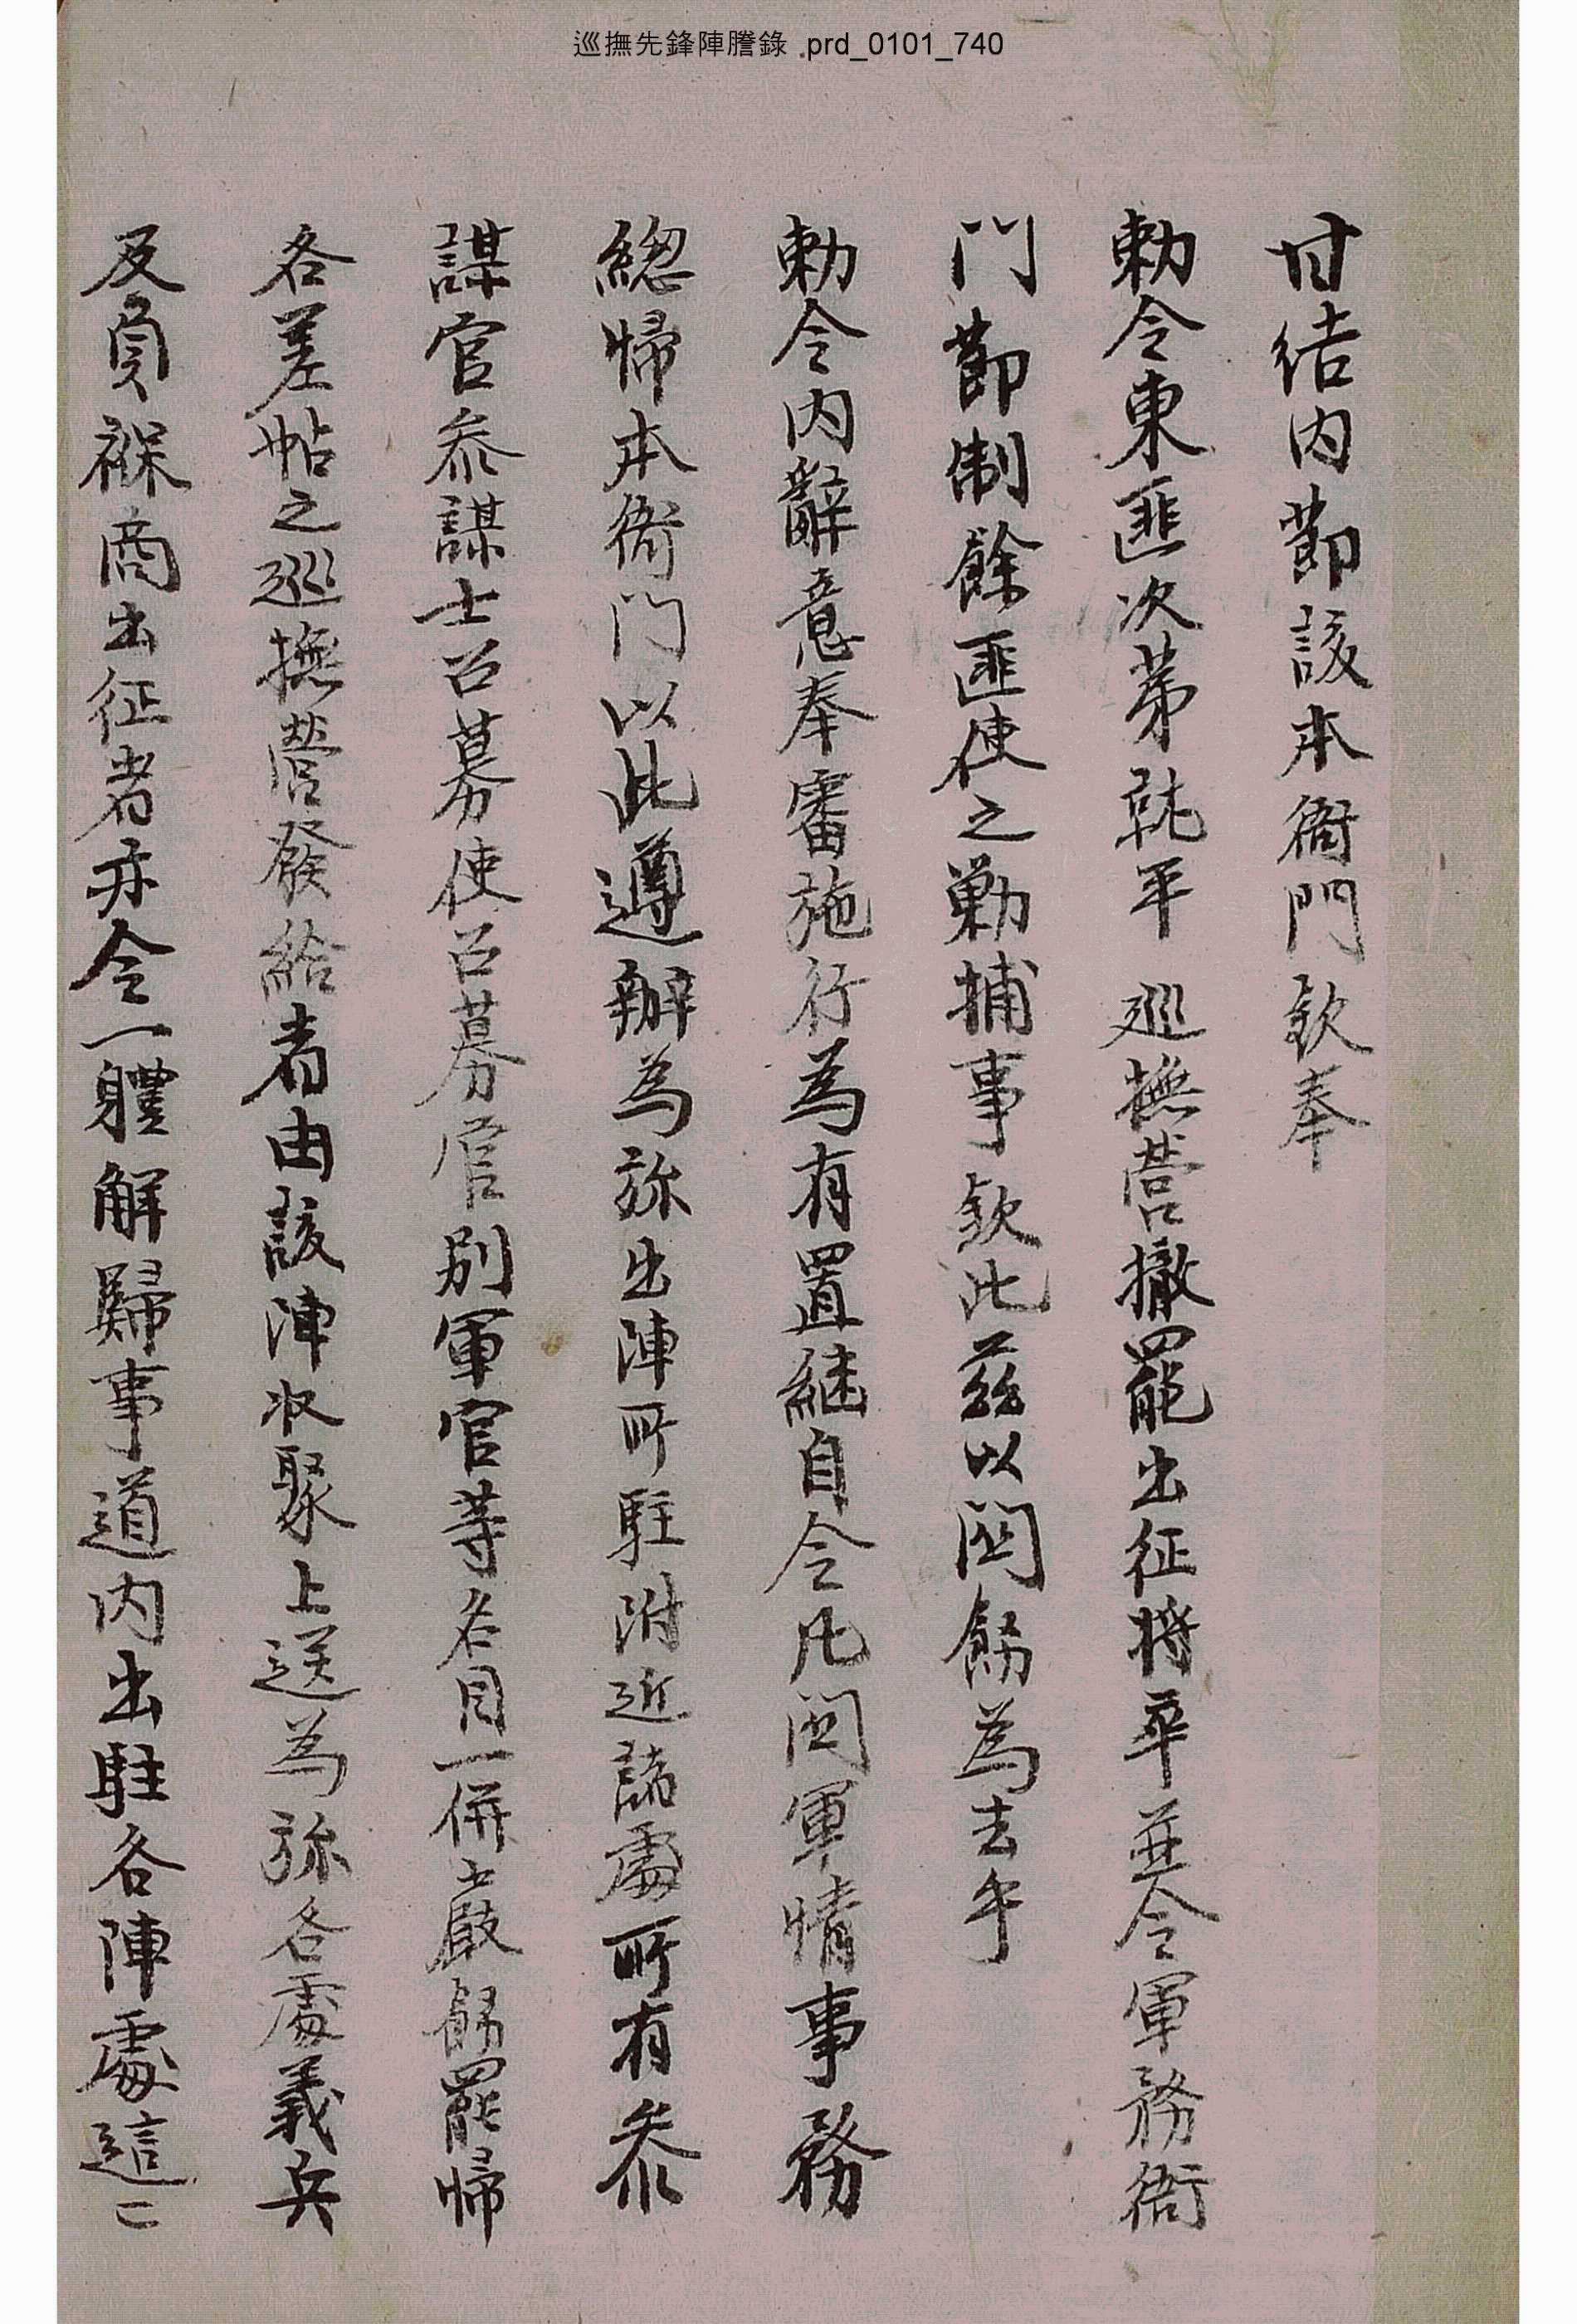 巡撫先鋒陣謄錄 prd_0101_740
甘結内節該本衙門欽奉
勅令東匪次苐就平 巡撫营撤罷出征將卒並令軍務衙
門節制餘匪使之勦捕事欽此玆以関飭為去乎
勅令内辭意奉審施行為有置継自今凡関軍情事務
総帰本衙門以此遵辦為旀出陣所駐附近諸處所有叅
謀官叅謀士召募使召募官别軍官等名目一併嚴飭罷帰
各差帖之巡撫营發給者由該陣收聚上送為旀各處義兵
及負褓商出征者亦令一軆解歸事道内出駐各陣處這這